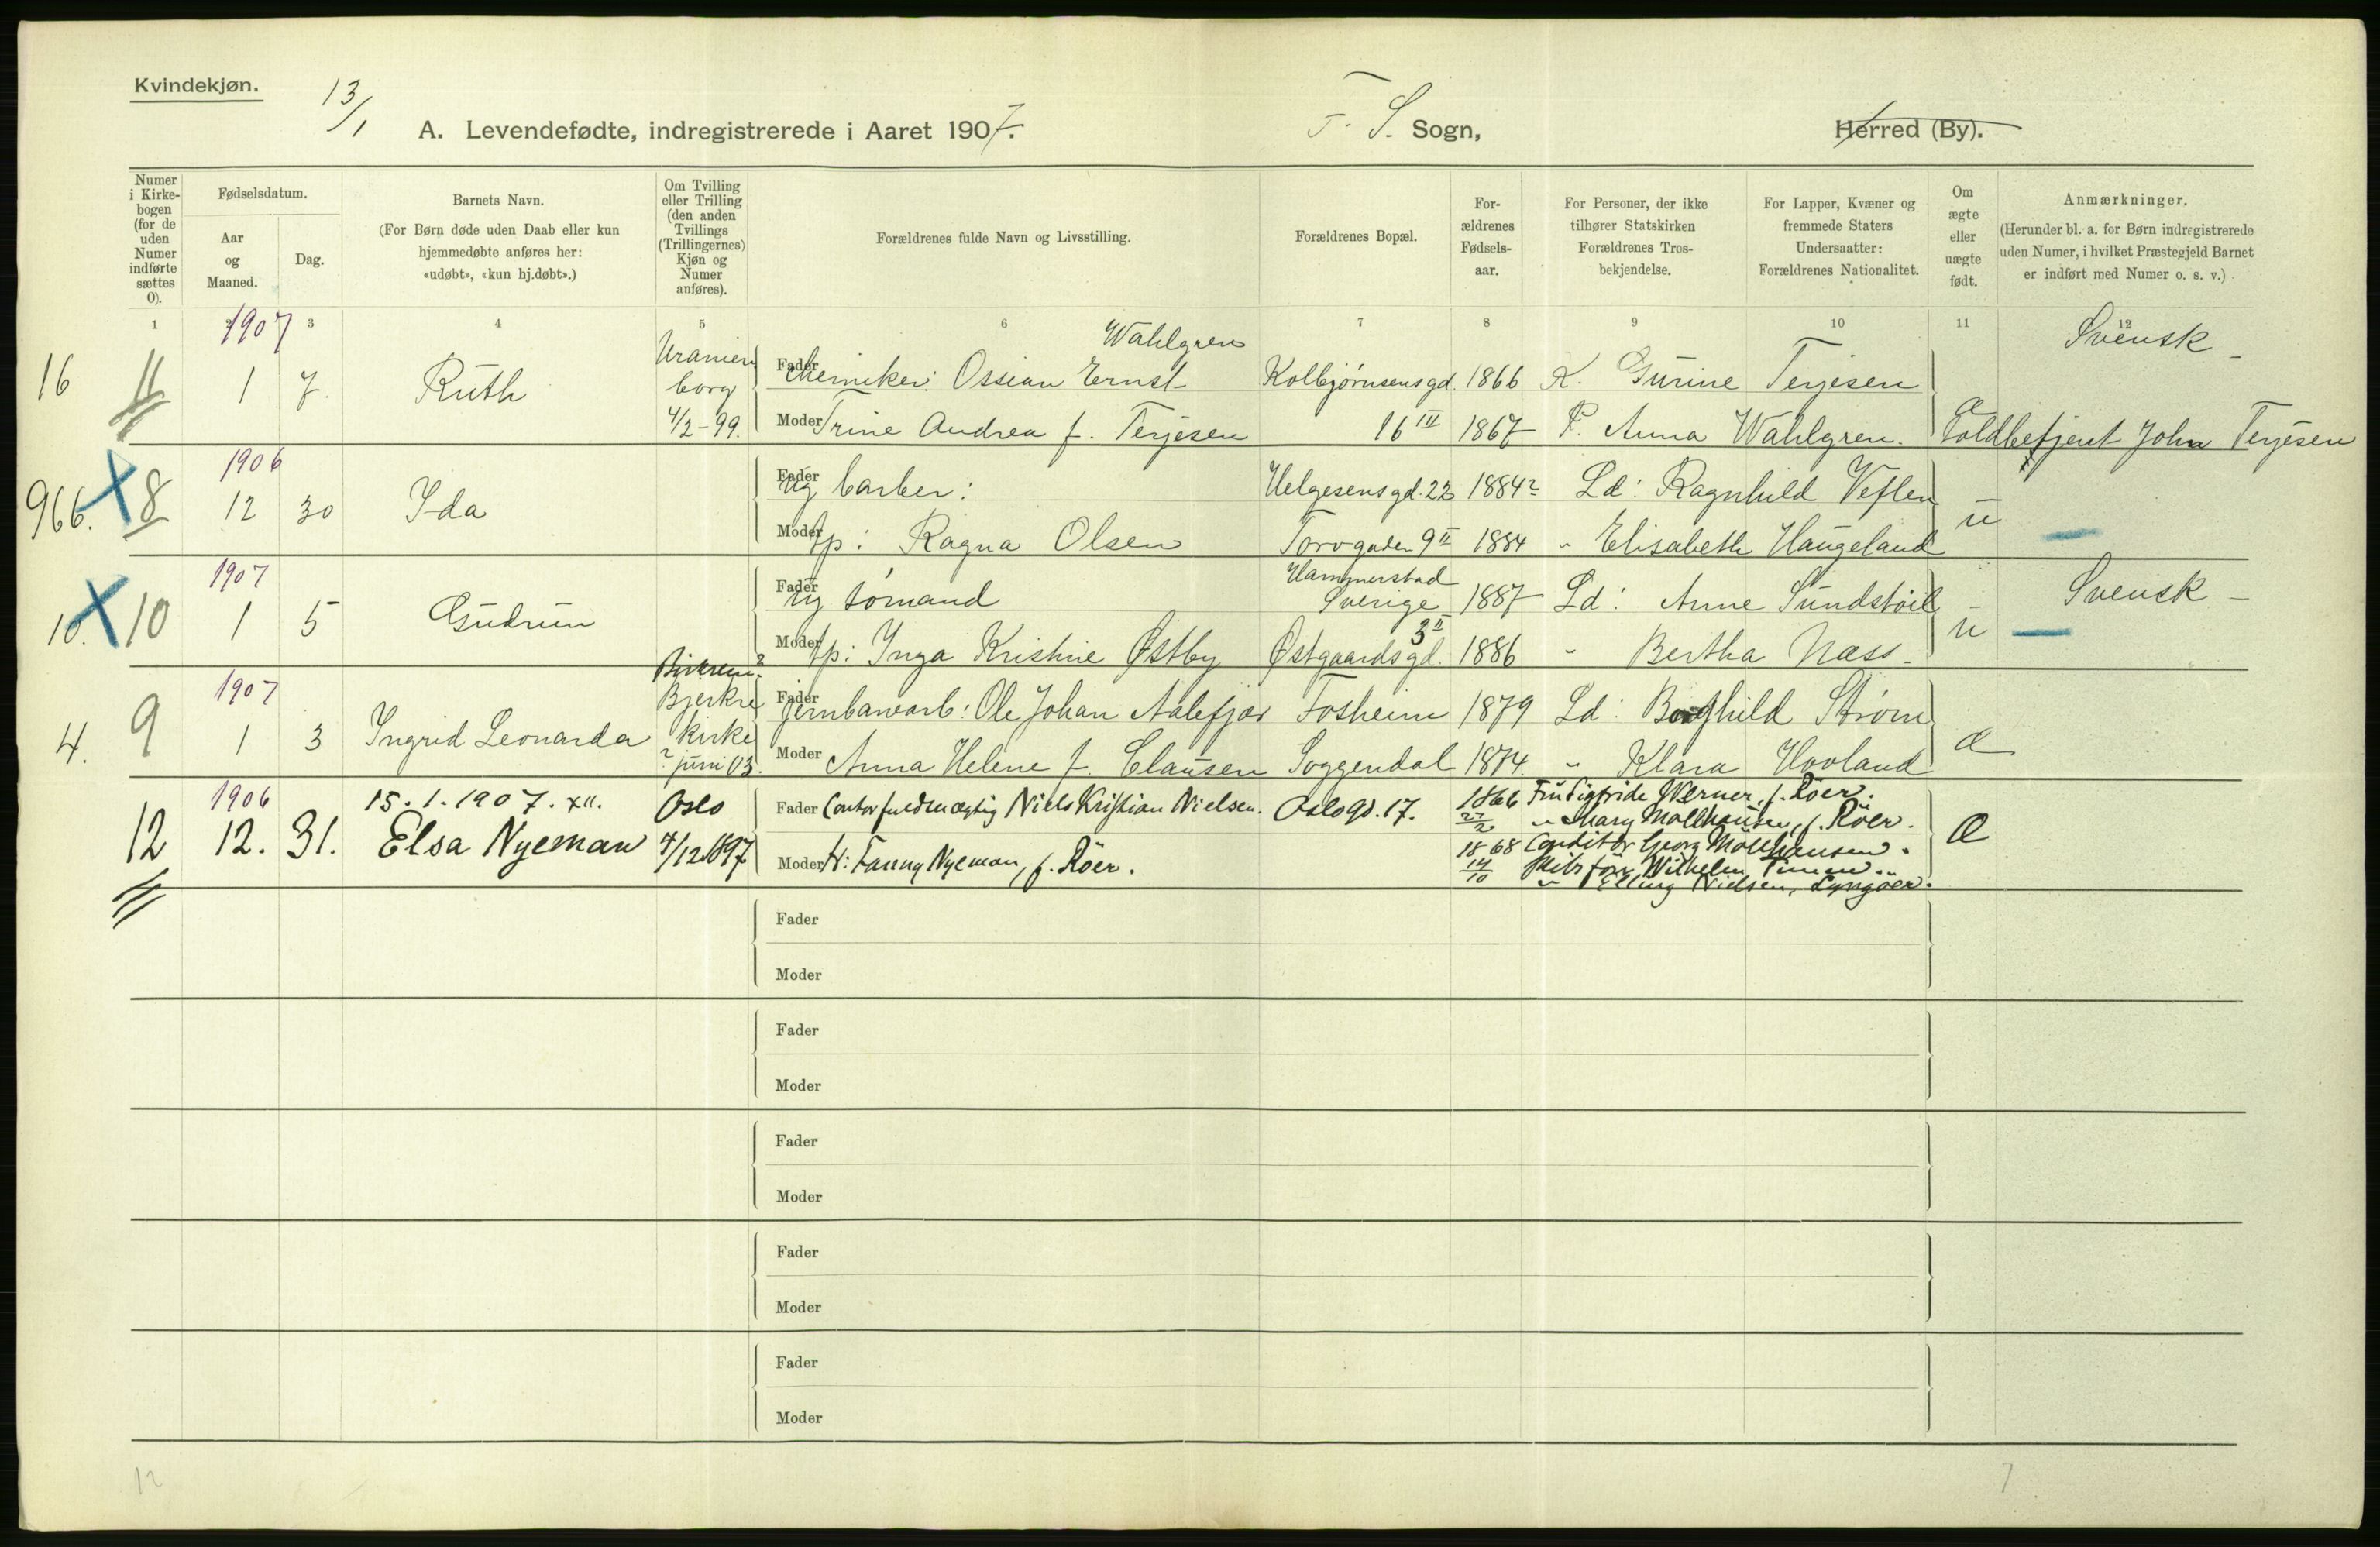 Kvindekjøn.
13/1
A. Levendefødte, indregistrerede i Aaret 1907.
F. S. Sogn,
Herred (By).
Numer i Kirke-bogen (for de uden Numer indførte sættes 0).
Fødselsdatum.
Aar og Maaned.
Dag.
Barnets Navn.
(For Børn døde uden Daab eller kun hjemmedøbte anføres her: «udøbt», «kun hj.døbt».)
Om Tvilling eller Trilling (den anden Tvillings (Trillingernes) Kjøn og Numer anføres).
Forældrenes fulde Navn og Livsstilling.
Forældrenes Bopæl.
For-ældrenes Fødsels-aar.
For Personer, der ikke tilhører Statskirken Forældrenes Tros-bekjendelse.
For Lapper, Kvæner og fremmede Staters Undersaatter: Forældrenes Nationalitet.
Om ægte eller uægte født.
Anmærkninger.
(Herunder bl. a. for Børn indregistrerede uden Numer, i hvilket Præstegjeld Barnet er indført med Numer o. s. v.)
1 2 3 4 5 6 7 8 9 10 11 12
16 11 1907 1 7. Ruth Uranienborg 4/2-99.
Fader Kemiker: Ossian Ernst Wahlgren Kolbjørnsensgd. 1866 K. Gurine Terjesen Svensk -
Moder Trine Andrea f. Terjesen 16 III 1867 F. Anna Wahlgren. Toldbetjent John Terjesen
966. 8 1906 12 30 Ida
Fader Ug barber: Helgesensgd. 22 1884? Ld: Ragnhild Veflen
Moder tp: Ragna Olsen Torvgaden 9 II 1884 " Elisabeth Haugeland u
10. 10 1907 1 5 Gudrun
Fader Ug sømand Hammerstad Sverige 1887 Ld: Anne Sundstøil Svensk -
Moder tp: Inga Kristine Østby Østgaardsgd. 3 II 1886 " Bertha Næss - u
4. 9 1907 1 3 Ingrid Leonarda Bjerkre kirke ? juni 03.
Fader Jernbanearb: Ole Johan Aalefjær Fosheim 1879 Ld: Borghild Strøm
Moder Anna Helene f. Clausen Soggendal 1874. " Klara Hovland æ
12 1906 12. 31. 15. 1. 1907. XII. Elsa Nyeman Oslo 4/12 1897
Fader Contorfuldmægtig Niels Kristian Nielsen. Oslogd. 17. 1866 27/2 Fru Sigfride Werner, f. Röer.
" Mary Mollhausen, f. Röer.
Moder H: Fanny Nyeman, f. Röer. 1868 14/10 Conditor Georg Möllhausen. Æ
Skibsför. Wilhelm
" Elling Nielsen, Lyngöer.
Fader
Moder
Fader
Moder
Fader
Moder
Fader
Moder
Fader
Moder
12
7